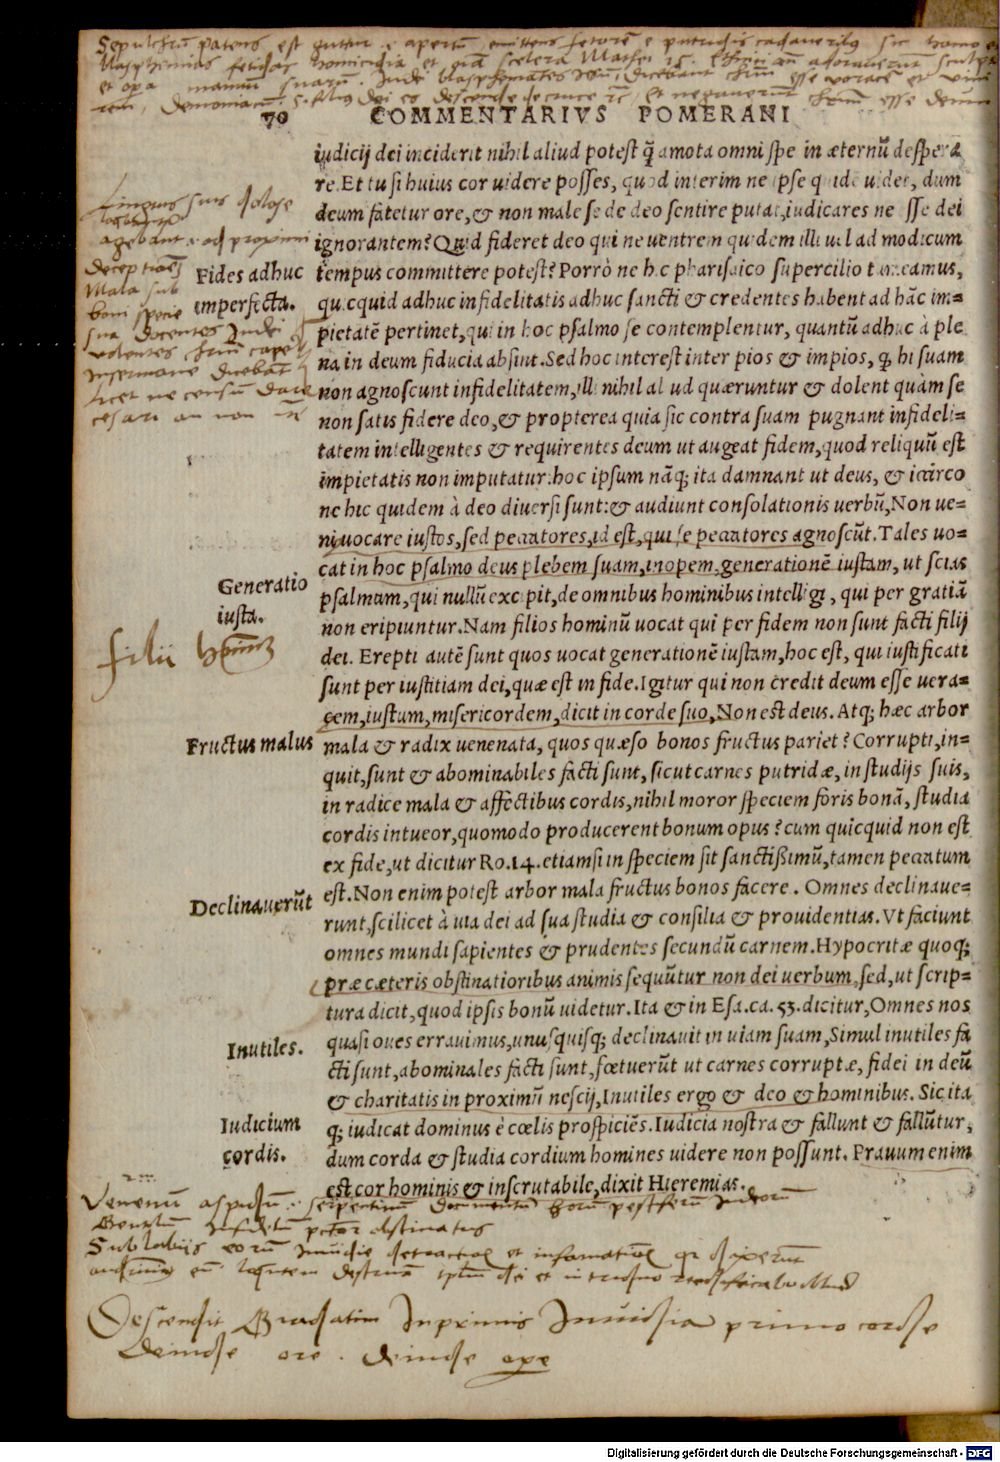 Sepulchrū patens est guttur .i. apertū emittens fetorē e putridis cadaveribus sic homo
blasphemias fetidas homicidia et oīa scelera Mathei
et opa manuum suarum . Iudei blasphemates dicebant esse voracē et vini
demoniacū . filius dei es descende de cruce et negaverunt esse deum
70 COMMENTARIVS POMERANI
iudicij dei inciderit nihil aliud potest q̃ amota omni spe in æternū despera
re. Et tu si huius cor uidere posses, quod interim ne ipse quidē uidet, dum
deum fatetur ore, & non male se de deo sentire putat, iudicares ne esse dei
ignorantem? Quid fideret deo qui ne uentrem quidem illi uel ad modicum
tempus committere potest? Porrò ne hic pharisaico supercilio tumeamus,
quicquid adhuc infidelitatis adhuc sancti & credentes habent ad hāc im=
pietatē pertinet, qui in hoc psalmo se contemplentur, quantū adhuc à ple
na in deum fiducia absint. Sed hoc interest inter pios & impios, q̃ hi suam
non agnoscunt infidelitatem, illi nihil aliud quæruntur & dolent quàm se
non satis fidere deo, & propterea quia sic contra suam pugnant infideli=
tatem intelligentes & requirentes deum ut augeat fidem, quod reliquū est
impietatis non imputatur: hoc ipsum nāq; ita damnant ut deus, & idcirco
ne hic quidem à deo diuersi sunt: & audiunt consolationis uerbū, Non ue=
ni uocare iustos, sed peccatores, id est, qui se peccatores agnoscūt. Tales uo=
cat in hoc psalmo deus plebem suam, inopem, generationē iustam, ut scias
psalmum, qui nullū excepit, de omnibus hominibus intelligi, qui per gratiā
non eripiuntur. Nam filios hominū uocat qui per fidem non sunt facti filij
dei. Erepti autē sunt quos uocat generationē iustam, hoc est, qui iustificati
sunt per iustitiam dei, quæ est in fide. Igitur qui non credit deum esse uera=
cem, iustum, misericordem, dicit in corde suo, Non est deus. Atq; hæc arbor
mala & radix uenenata, quos quæso bonos fructus pariet? Corrupti, in=
quit, sunt & abominabiles facti sunt, sicut carnes putridæ, in studijs suis,
in radice mala & affectibus cordis, nihil moror speciem foris bonā, studia
cordis intueor, quomodo producerent bonum opus? cum quicquid non est
ex fide, ut dicitur Ro.14. etiamsi in speciem sit sanctißimū, tamen peccatum
est. Non enim potest arbor mala fructus bonos facere. Omnes declinaue=
runt, scilicet à uia dei ad sua studia & consilia & prouidentias. Vt faciunt
omnes mundi sapientes & prudentes secundū carnem. Hypocritæ quoq;
præ cæteris obstinatioribus animis sequūtur non dei uerbum, sed, ut scrip=
tura dicit, quod ipsis bonū uidetur. Ita & in Esa.ca.53. dicitur, Omnes nos
quasi oues errauimus, unusquisq; declinauit in uiam suam, Simul inutiles fa
cti sunt, abominales facti sunt, fœtuerūt ut carnes corruptæ, fidei in deū
& charitatis in proximū nescij, Inutiles ergo & deo & hominibus. Sic ita
q; iudicat dominus è cœlis prospiciēs. Iudicia nostra & fallunt & fallūtur,
dum corda & studia cordium homines uidere non possunt. Prauum enim
est cor hominis & inscrutabile, dixit Hieremias.
Linguis suis dolose
agebant .i. ad proximi
deceptionē
Mala sub
boni specie
sua docentes Iudei
volentes capere
in sermone dicebāt
licet ne censum dare
cesari an non
Fides adhuc
imperfecta.
Generatio
iusta.
filii hominū
Fructus malus
Declinauerūt
Inutiles.
Iudicium
cordis.
Venenū aspidum .i. serpentinum documentū horū pestiferū Iudeorū
Gentiū obstinatus
Sub labiis eorū Invidie detractiōis et infamatiōis
Descendit Gradatim Inprimis Invidia primo corde
Deinde ore . deinde ope
Digitalisierung gefördert durch die Deutsche Forschungsgemeinschaft - DFG